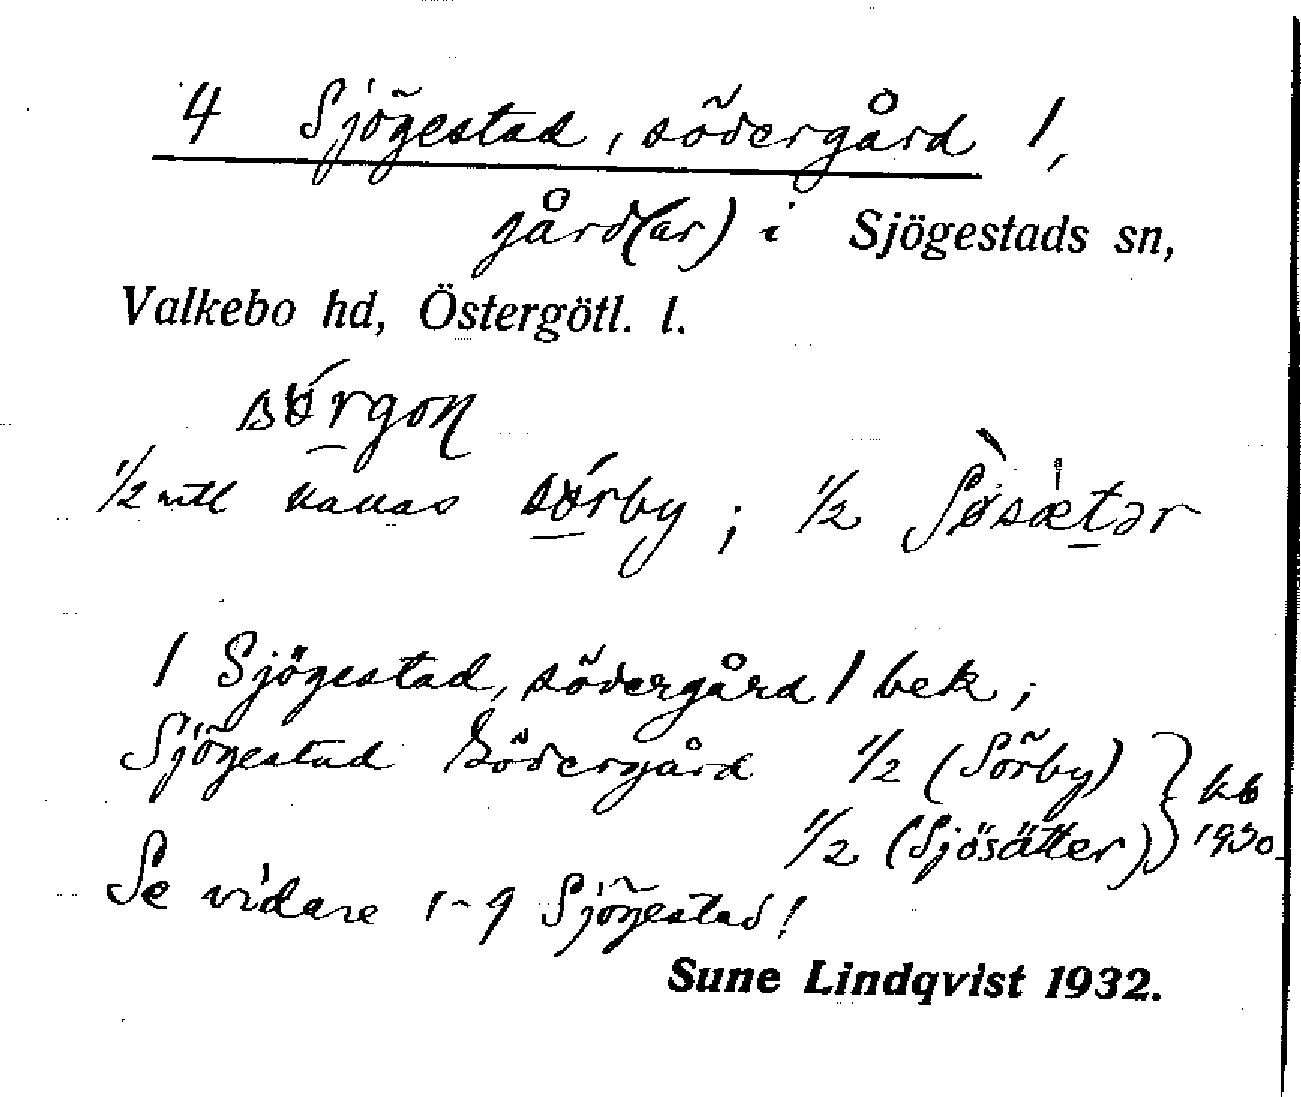 4 Sjögestad, södergård 1,
gård(ar) i Sjögestads sn,
Valkebo hd, Östergötl. l.
sørgon
1/2 mtl kallas sørby; 1/2 Søsætər
1 Sjögestad, södergård 1 bek;
Sjögestad Södergård 1/2 (Sörby)
1/2 (Sjösätter) kb 1930.
Se vidare 1-9 Sjögestad!
Sune Lindqvist 1932.